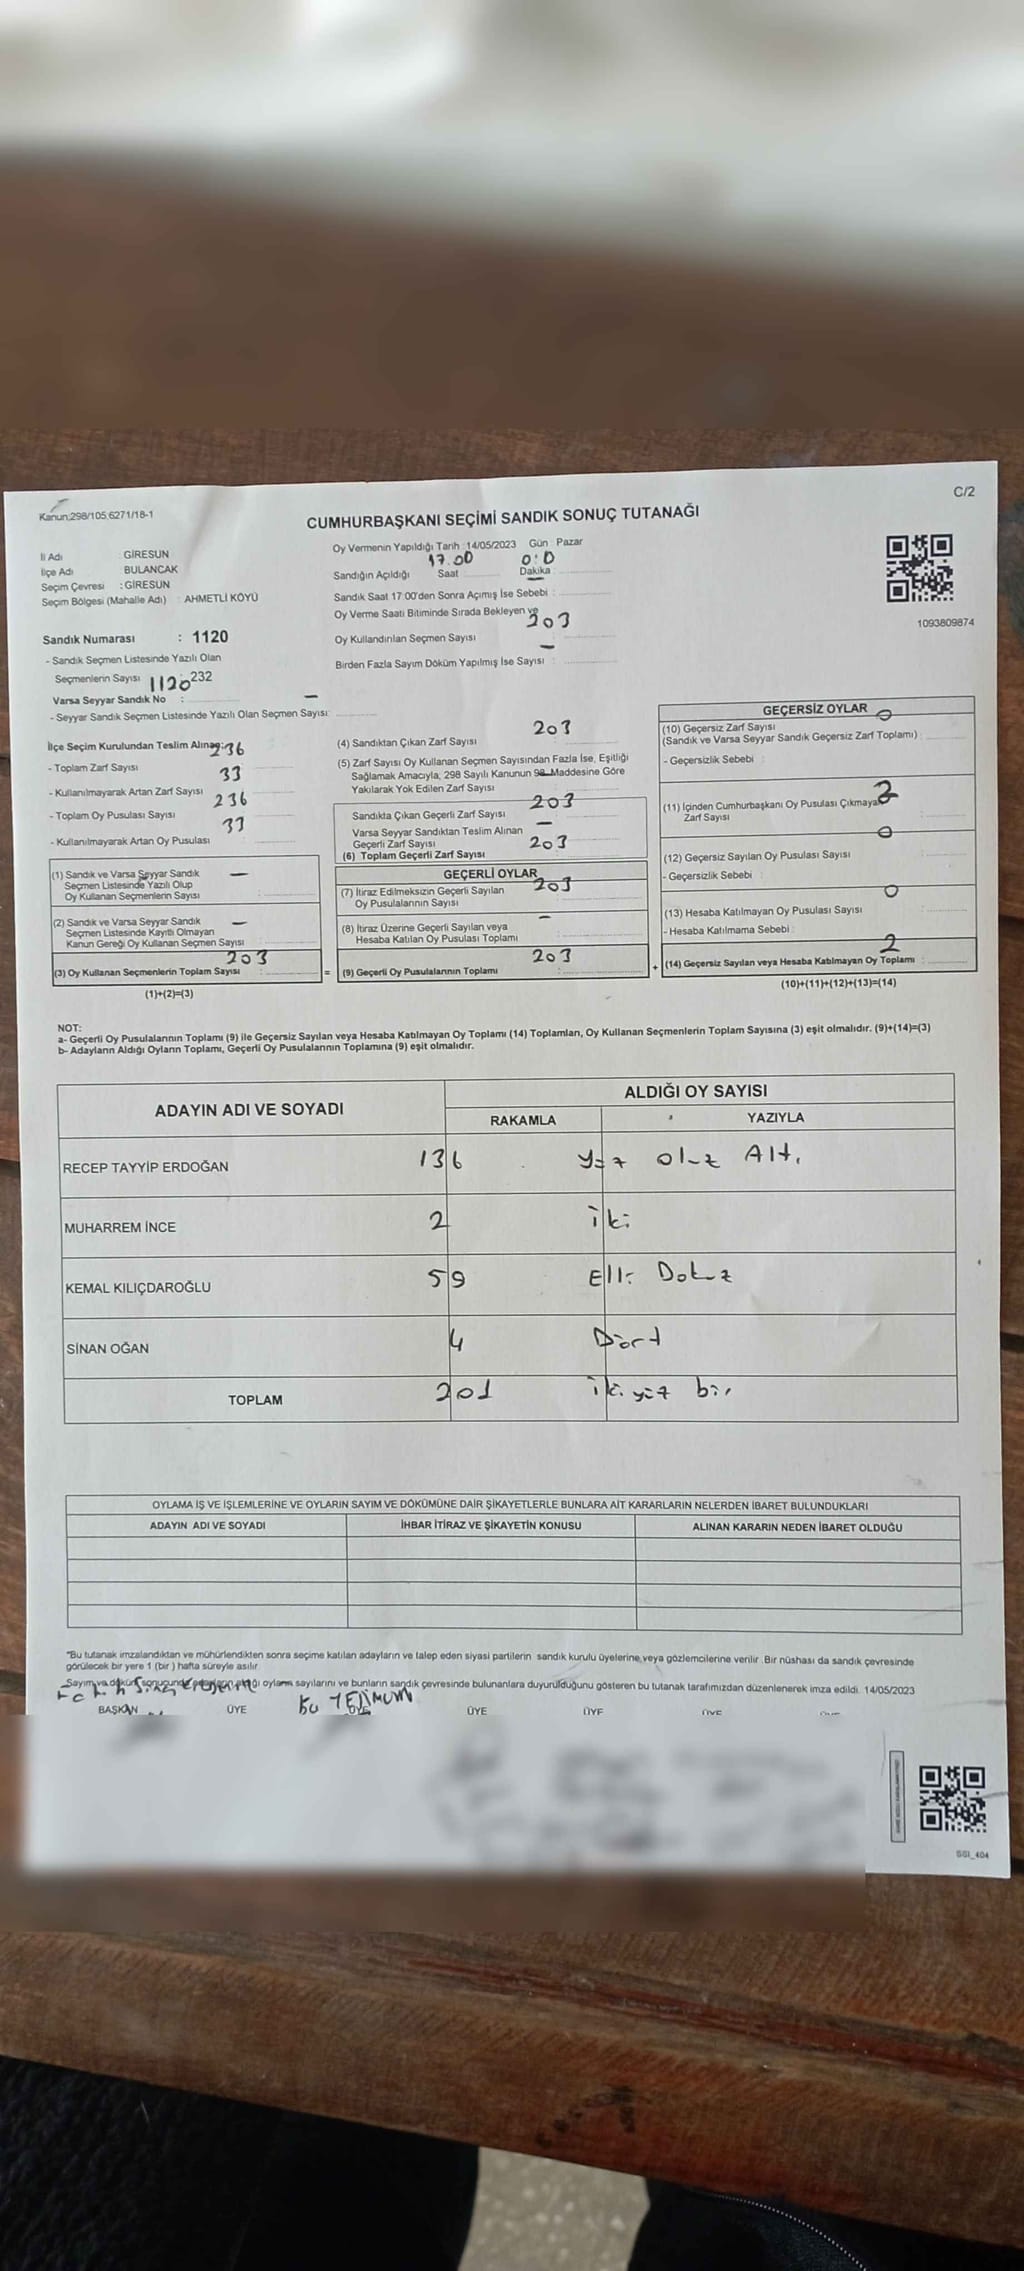 Kanun;298/105;6271/18-1
C/2
CUMHURBAŞKANI SEÇİMİ SANDIK SONUÇ TUTANAĞI
İl Adı GİRESUN
İlçe Adı : BULANCAK
Seçim Çevresi : GİRESUN
Seçim Bölgesi (Mahalle Adı) : AHMETLİ KÖYÜ
Sandık Numarası : 1120
- Sandık Seçmen Listesinde Yazılı Olan
Seçmenlerin Sayısı 1120 : 232
Varsa Seyyar Sandık No : —
- Seyyar Sandık Seçmen Listesinde Yazılı Olan Seçmen Sayısı:
Oy Vermenin Yapıldığı Tarih :14/05/2023 Gün : Pazar
17.00 0:0
Sandığın Açıldığı Saat Dakika :
Sandık Saat 17:00'den Sonra Açımış İse Sebebi : —
Oy Verme Saati Bitiminde Sırada Bekleyen ve
203
Oy Kullandırılan Seçmen Sayısı :
Birden Fazla Sayım Döküm Yapılmış İse Sayısı : —
1093809874
İlçe Seçim Kurulundan Teslim Alınan; 236
- Toplam Zarf Sayısı
33
- Kullanılmayarak Artan Zarf Sayısı
236
- Toplam Oy Pusulası Sayısı
33
- Kullanılmayarak Artan Oy Pusulası
(1) Sandık ve Varsa Seyyar Sandık —
Seçmen Listesinde Yazılı Olup
Oy Kullanan Seçmenlerin Sayısı :
(2) Sandık ve Varsa Seyyar Sandık —
Seçmen Listesinde Kayıtlı Olmayan
Kanun Gereği Oy Kullanan Seçmen Sayısı
203
(3) Oy Kullanan Seçmenlerin Toplam Sayısı :
(1)+(2)=(3)
=
203
(4) Sandıktan Çıkan Zarf Sayısı :
(5) Zarf Sayısı Oy Kullanan Seçmen Sayısından Fazla İse, Eşitliği
Sağlamak Amacıyla, 298 Sayılı Kanunun 98. Maddesine Göre
Yakılarak Yok Edilen Zarf Sayısı —
203
Sandıkta Çıkan Geçerli Zarf Sayısı :
Varsa Seyyar Sandıktan Teslim Alınan —
Geçerli Zarf Sayısı : 203
(6) Toplam Geçerli Zarf Sayısı
GEÇERLİ OYLAR
203
(7) İtiraz Edilmeksizin Geçerli Sayılan
Oy Pusulalarının Sayısı
(8) İtiraz Üzerine Geçerli Sayılan veya —
Hesaba Katılan Oy Pusulası Toplamı
203
(9) Geçerli Oy Pusulalarının Toplamı :
+
GEÇERSİZ OYLAR
0
(10) Geçersiz Zarf Sayısı
(Sandık ve Varsa Seyyar Sandık Geçersiz Zarf Toplamı) :
- Geçersizlik Sebebi :
2
(11) İçinden Cumhurbaşkanı Oy Pusulası Çıkmayan
Zarf Sayısı
0
(12) Geçersiz Sayılan Oy Pusulası Sayısı :
- Geçersizlik Sebebi :
0
(13) Hesaba Katılmayan Oy Pusulası Sayısı :
- Hesaba Katılmama Sebebi :
2
(14) Geçersiz Sayılan veya Hesaba Katılmayan Oy Toplamı :
(10)+(11)+(12)+(13)=(14)
NOT:
a- Geçerli Oy Pusulalarının Toplamı (9) ile Geçersiz Sayılan veya Hesaba Katılmayan Oy Toplamı (14) Toplamları, Oy Kullanan Seçmenlerin Toplam Sayısına (3) eşit olmalıdır. (9)+(14)=(3)
b- Adayların Aldığı Oyların Toplamı, Geçerli Oy Pusulalarının Toplamına (9) eşit olmalıdır.
ADAYIN ADI VE SOYADI ALDIĞI OY SAYISI
RAKAMLA YAZIYLA
RECEP TAYYİP ERDOĞAN 136 yüz otuz Altı
MUHARREM İNCE 2 iki
KEMAL KILIÇDAROĞLU 59 Elli Dokuz
SİNAN OĞAN 4 Dört
TOPLAM 201 iki yüz bir
OYLAMA İŞ VE İŞLEMLERİNE VE OYLARIN SAYIM VE DÖKÜMÜNE DAİR ŞİKAYETLERLE BUNLARA AİT KARARLARIN NELERDEN İBARET BULUNDUKLARI
ADAYIN ADI VE SOYADI İHBAR İTİRAZ VE ŞİKAYETİN KONUSU ALINAN KARARIN NEDEN İBARET OLDUĞU
"Bu tutanak imzalandıktan ve mühürlendikten sonra seçime katılan adayların ve talep eden siyasi partilerin sandık kurulu üyelerine veya gözlemcilerine verilir. Bir nüshası da sandık çevresinde
görülecek bir yere 1 (bir ) hafta süreyle asılır.
Sayım ve döküm sonucunda adayların aldığı oyların sayılarını ve bunların sandık çevresinde bulunanlara duyurulduğunu gösteren bu tutanak tarafımızdan düzenlenerek imza edildi. 14/05/2023
BAŞKAN ÜYE ÜYE ÜYE ÜYE ÜYE
SSI_404